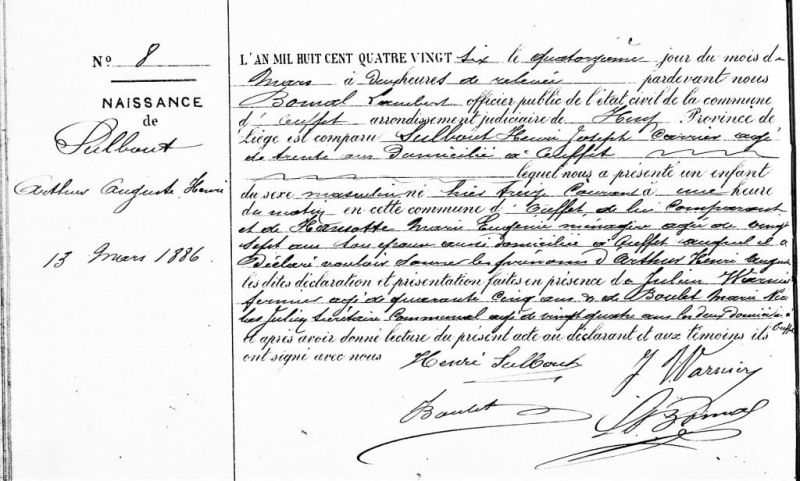 N° 8
NAISSANCE
de
Sulbout
Arthur Auguste Henri
13 Mars 1886.
L'AN MIL HUIT CENT QUATRE VINGT six le quatorzième jour du mois de
Mars à deux heures de relevée pardevant nous
Bomal Lambert officier public de l'état civil de la commune
d'Ouffet arrondissement judiciaire de Huy Province de
Liège est comparu Sulbout Henri Joseph Carrier agé
de trente ans domicilié à Ouffet
lequel nous a présenté un enfant
du sexe masculin né hier treize Courant à une heure
du matin en cette commune d'Ouffet, de lui Comparant
et de Hansotte Marie Eugénie ménagère agée de vingt
sept ans son épouse aussi domiciliée à Ouffet auquel il a
Déclaré vouloir donner les prénoms d'Arthur Henri Auguste
les dites déclaration et présentation faites en présence de Julien Warnier
fermier agé de quarante Cinq ans & de Boulet Marie
Julien Secrétaire Communal agé de vingt quatre ans les deux domiciliés à Ouffet
et après avoir donné lecture du présent acte au déclarant et aux témoins ils
ont signé avec nous
Henri Sulbout
J Warnier
Boulet
L Bomal